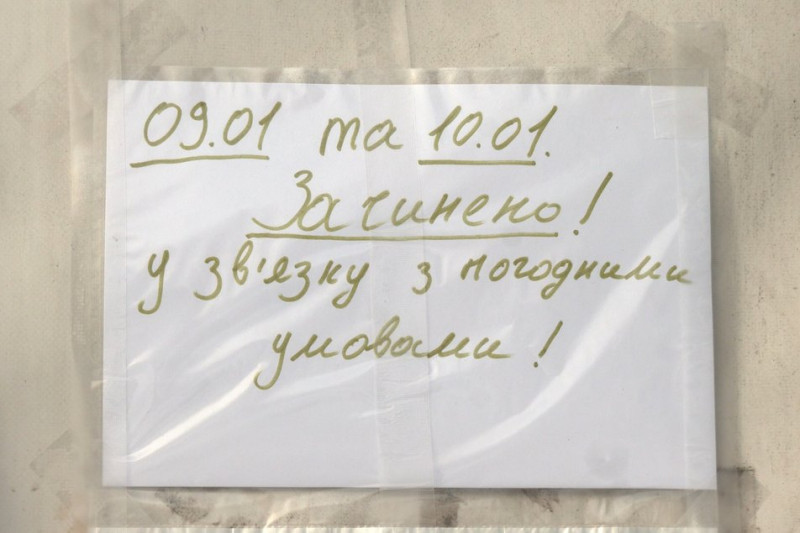 09.01 та 10.01.
Зачинено!
у зв'язку з погодними
умовами!